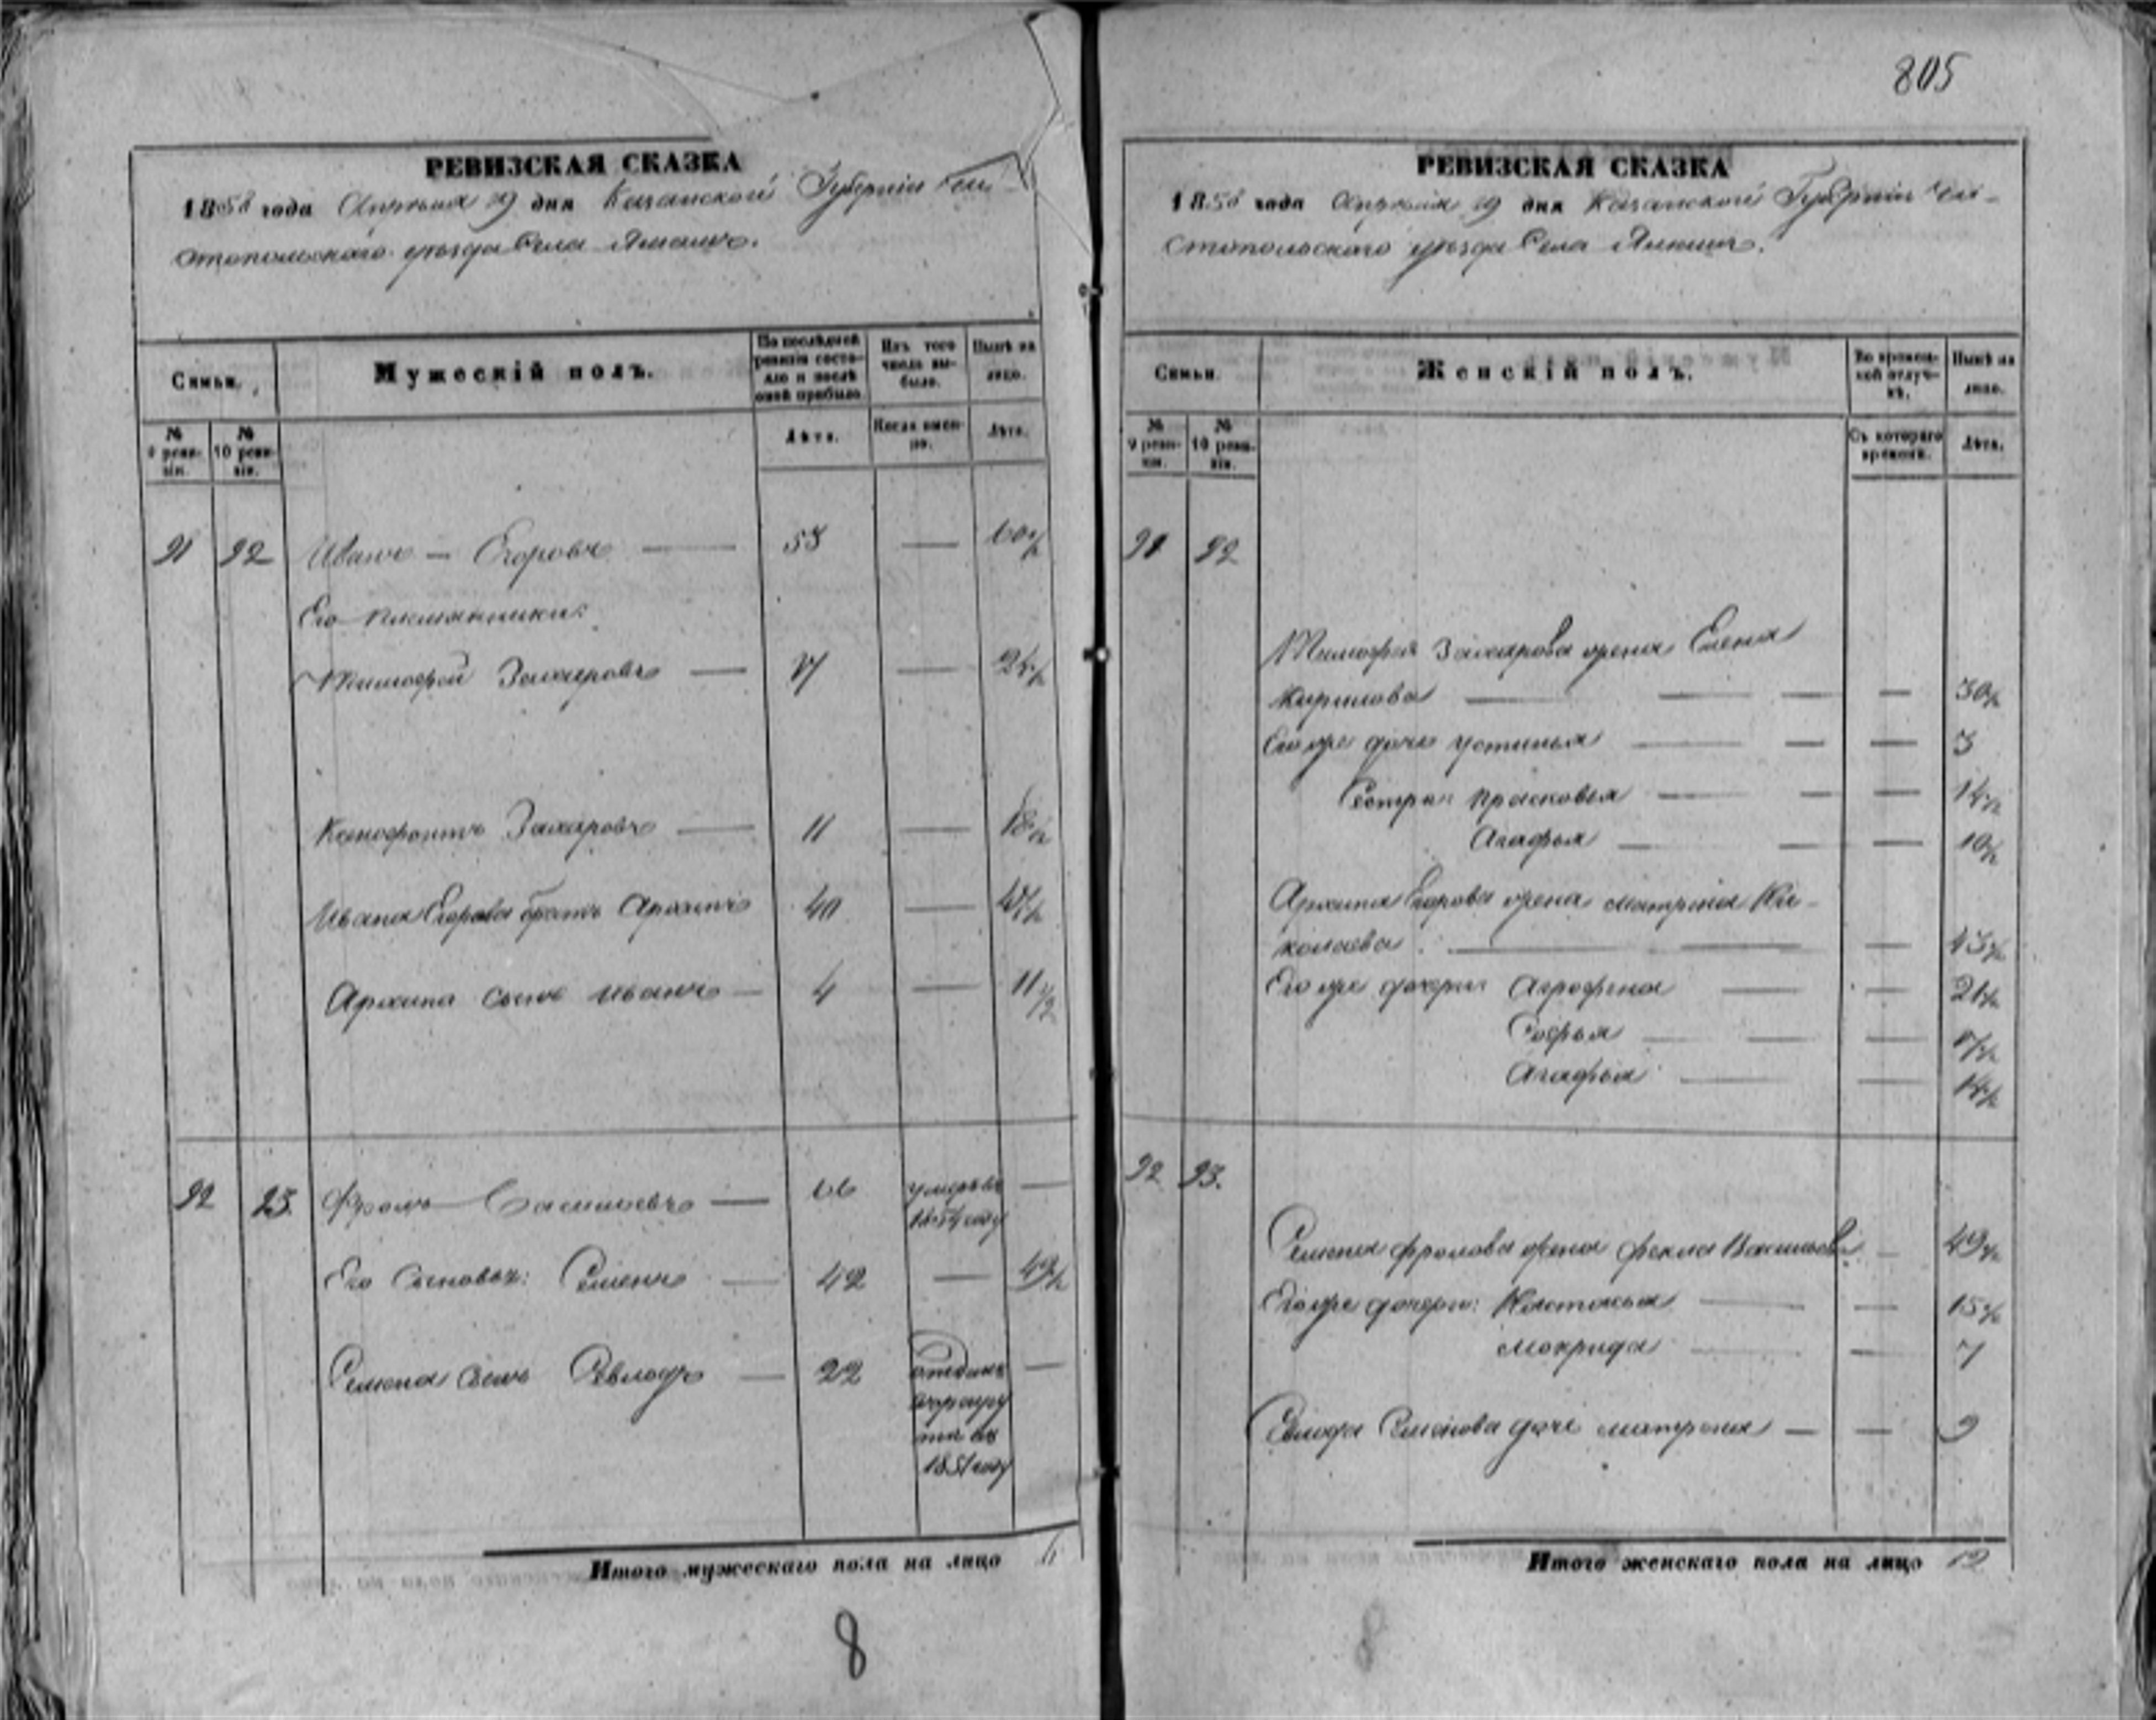 805
РЕВИЗСКАЯ СКАЗКА
1858 года Апреля 19 дня Казанской Губерніи Чи-
стопольскаго уезда Села
Семьи.
Мужескій полъ.
По послѣдней ревизіи состояло и послѣ оной прибыло.
Изъ того числа выбыло.
Нынѣ на лицо.
№ 9 ревизіи.
№ 10 ревизіи.
Лѣта.
Когда именно.
Лѣта.
21 22 Иванъ — Егоровъ — 53 — 60 1/2
Его племянники:
Тимофей Захаровъ — 17 — 24 1/2
Ксенофонтъ Захаровъ — 11 — 18 1/2
Ивана Егорова братъ Архипъ 40 — 47 1/2
Архипа сынъ Иванъ — 4 — 11 1/2
22 23. Фролъ Васильевъ — 66 умеръ въ 1854 году —
Его Сыновья: Семенъ — 42 — 49 1/2
Семена сынъ Евлофъ — 22 отданъ въ рекруты въ 1851 году —
Итого мужескаго пола на лицо 6
8
РЕВИЗСКАЯ СКАЗКА
1858 года Апреля 19 дня Казанской Губерніи Чи-
стопольскаго уезда Села
Семьи.
Женскій полъ.
Во временной отлучкѣ.
Нынѣ на лицо.
№ 9 ревизіи.
№ 10 ревизіи.
Съ котораго времени.
Лѣта.
21 22
Тимофея Захарова жена Елена
Кирилова — — — — 30 1/2
Его же дочь Устинья — — — 3
Сестры: Прасковья — — — 14 1/2
Агафья — — — 10 1/2
Архипа Егорова жена Матрена Ни-
колаева — — — 43 1/2
Его же дочери: Агрофена — — 21 1/2
Софья — — — 17 1/2
Агафья — — 14 1/2
22 23.
Семена Фролова жена Фекла Васильева — 49 1/2
Его же дочери: Настасья — — 15 1/2
Мокрида — — 7
Евлофа Семенова дочь Матрена — — 9
Итого женскаго пола на лицо 12